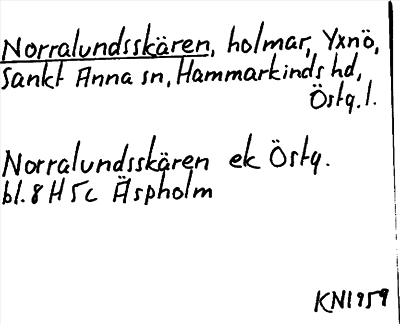 Norralundsskären, holmar, Yxnö,
Sankt Anna sn, Hammarkinds hd,
Östg.l.
Norralundsskären ek Östg.
bl. 8 H 5c Äspholm
KN1959